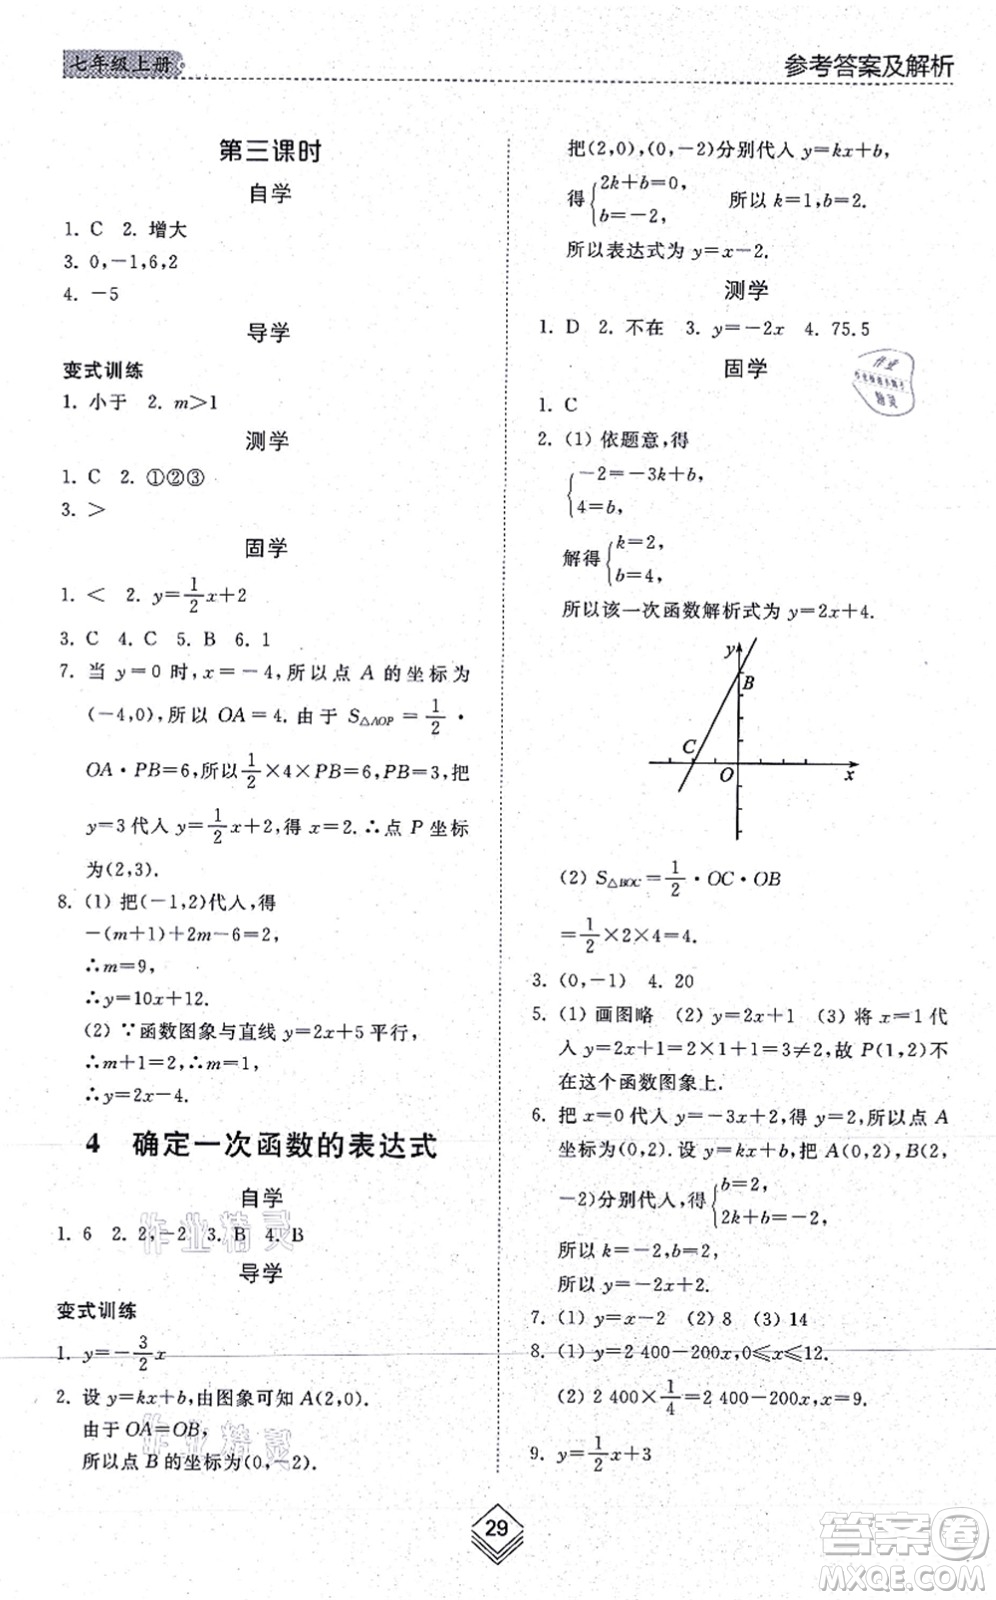 七年级上册
参考答案及解析
第三课时
自学
1. C 2. 增大
3. 0,-1,6,2
4. -5
导学
变式训练
1. 小于 2. m>1
测学
1. C 2. ①②③
3. >
固学
1. < 2. y=1/2x+2
3. C 4. C 5. B 6. 1
7. 当 y=0 时,x=-4,所以点 A 的坐标为
(-4,0),所以 OA=4. 由于 S△AOP=1/2·
OA·PB=6,所以1/2×4×PB=6,PB=3,把
y=3代入 y=1/2x+2,得 x=2. ∴点 P 坐标
为(2,3).
8. (1) 把(-1,2)代入,得
-(m+1)+2m-6=2,
∴m=9,
∴y=10x+12.
(2) ∵函数图象与直线 y=2x+5 平行,
∴m+1=2,∴m=1,
∴y=2x-4.
4 确定一次函数的表达式
自学
1. 6 2. 2,-2 3. B 4. B
导学
变式训练
1. y=-3/2x
2. 设 y=kx+b,由图象可知 A(2,0).
由于 OA=OB,
所以点 B 的坐标为(0,-2).
把(2,0),(0,-2)分别代入 y=kx+b,
得{2k+b=0, 所以 k=1,b=2.
b=-2,
所以表达式为 y=x-2.
测学
1. D 2. 不在 3. y=-2x 4. 75.5
固学
1. C
2. (1) 依题意,得
{-2=-3k+b,
4=b,
解得{k=2,
b=4,
所以该一次函数解析式为 y=2x+4.
y
B
C
O
x
(2) S△BOC=1/2·OC·OB
=1/2×2×4=4.
3. (0,-1) 4. 20
5. (1) 画图略 (2) y=2x+1 (3) 将 x=1 代
入 y=2x+1=2×1+1=3≠2,故 P(1,2)不
在这个函数图象上.
6. 把 x=0 代入 y=-3x+2,得 y=2,所以点 A
坐标为(0,2). 设 y=kx+b,把 A(0,2),B(2,
-2)分别代入,得{b=2,
2k+b=-2,
所以 k=-2,
所以 y=-2x+2.
7. (1) y=x-2 (2) 8 (3) 14
8. (1) y=2 400-200x,0≤x≤12.
(2) 2 400×1/4=2 400-200x,x=9.
9. y=1/2x+3
29
作业精灵
作业精灵
答案卷
MXQE.COM